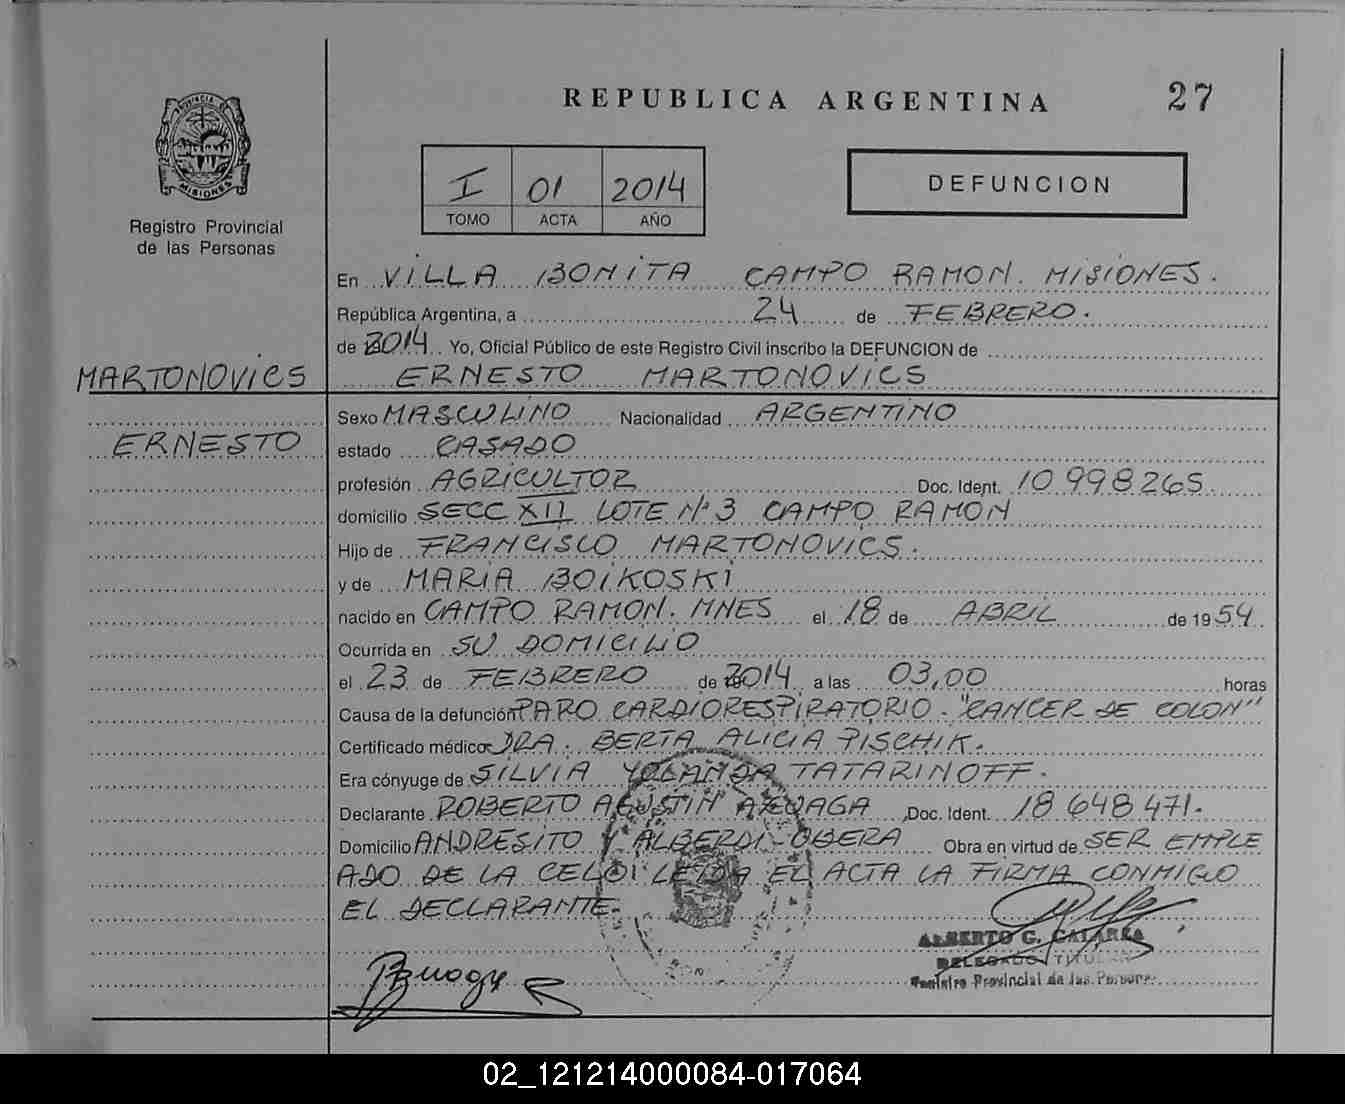 REPUBLICA ARGENTINA 27
PROVINCIA DE
MISIONES
Registro Provincial
de las Personas
I 01 2014
TOMO ACTA AÑO
DEFUNCION
En VILLA BONITA CAMPO RAMON. MISIONES.
República Argentina, a 24 de FEBRERO.
de 2014 Yo, Oficial Público de este Registro Civil inscribo la DEFUNCION de
MARTONOVICS ERNESTO MARTONOVICS
Sexo MASCULINO Nacionalidad ARGENTINO
ERNESTO estado CASADO
profesión AGRICULTOR Doc. Ident. 10 998265
domicilio SECC XII LOTE Nº 3 CAMPO RAMON
Hijo de FRANCISCO MARTONOVICS.
y de MARIA BOIKOSKI
nacido en CAMPO RAMON. MNES el 18 de ABRIL de 1954
Ocurrida en SU DOMICILIO
el 23 de FEBRERO de 2014 a las 03,00 horas
Causa de la defunción PARO CARDIORESPIRATORIO - "CANCER DE COLON"
Certificado médico DRA. BERTA ALICIA PISCHIK.
Era cónyuge de SILVIA YOLANDA TATARINOFF.
Declarante ROBERTO AGUSTIN AZUAGA Doc. Ident. 18 648 471.
Domicilio ANDRESITO Y ALBERDI - OBERA Obra en virtud de SER EMPLE
ADO DE LA CELO LEIDA EL ACTA LA FIRMA CONMIGO
EL DECLARANTE.
ALBERTO G.
DELEGADO TITULAR
Registro Provincial de las Personas
02_121214000084-017064